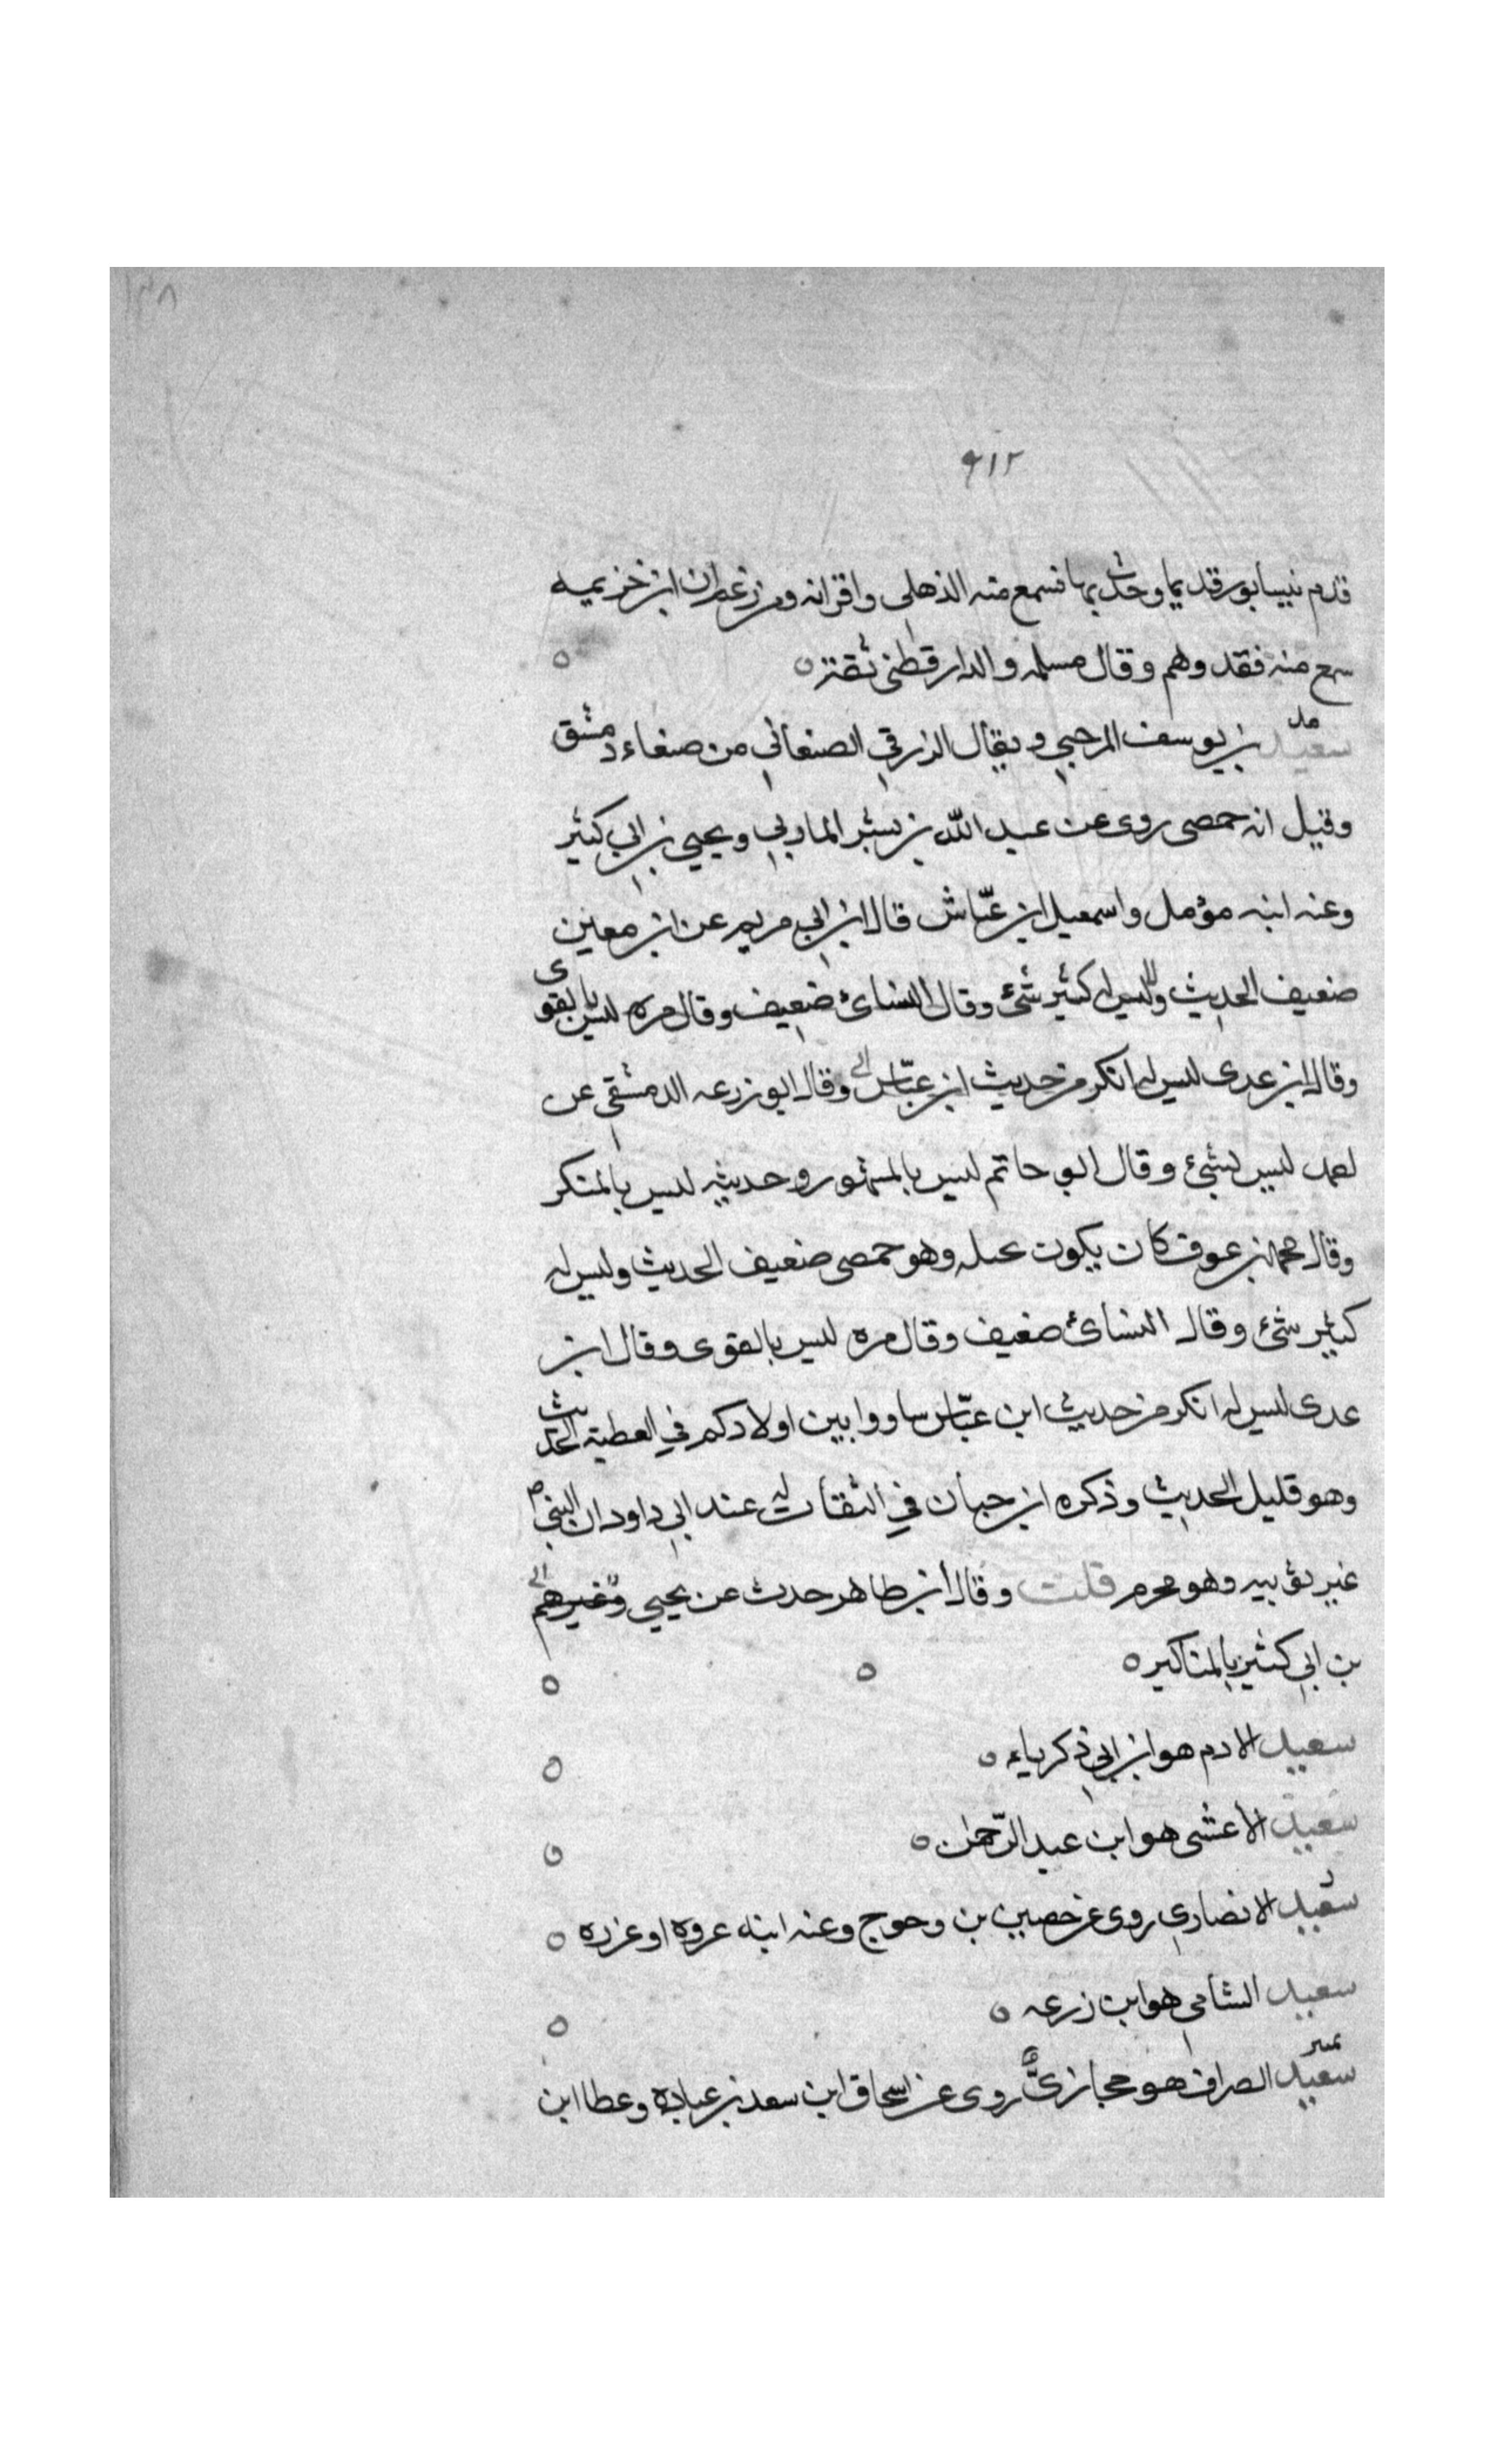 ١٣٨
٩١٢
قدم نيسابور قديما وحدث بها فسمع منه الذهلي واقرانه ومن زعم ان ابن خزيميه
سمع منه فقد وهم وقال مسلمه والدارقطني ثقة ه ه
مد
سعيد بن يوسف الرحبي ويقال الزرقي الصنعاني من صنعاء دمشق
وقيل انه حمصى روى عن عبد الله بن بشر المازني ويحيي بن ابي كثير
وعنه ابنه مؤمل واسمعيل ابن عيّاش قال ابن ابي مريم عن ابن معين
ضعيف الحديث وليس له كثير شئ وقال النسائ ضعيف وقال مره ليس بالقوى
وقال ابن عدى ليس له انكر من حديث ابن عبّاس وقال ابو زرعه الدمشقي عن
ليس بشئ وقال ابو حاتم ليس بالمشهور وحديثه ليس بالمنكر
وقال محمد بن عوف كان يكون وهو حمصى ضعيف الحديث وليس له
كثير شئ وقال النسائ ضعيف وقال مره ليس بالقوى وقال ابن
عدى ليس له انكر من حديث ابن عبّاس ساووا بين اولادكم في العطية الحديث
وهو قليل الحديث وذكره ابن حبان في الثقات له عند ابي داود ان النبي ص
غير ثوبيه وهو محرم قلت وقال ابن طاهر حدث عن يحيي وغيرهم
بن ابي كثير بالمناكير ه ه ه
سعيد الادم هو ابن ابي زكرياء ه ه
سعيد الأعشى هو ابن عبد الرّحمٰن ه ه
د
سعيد الانصاري روى عن حصين بن وحوح وعنه ابنه عروه او عزره ه
سعيد الشامي هو ابن زرعه ه ه
تميز
سعيد الصراف هو حجازىٌّ روى عن اسحاق ابن سعد بن عباده وعطا ابن